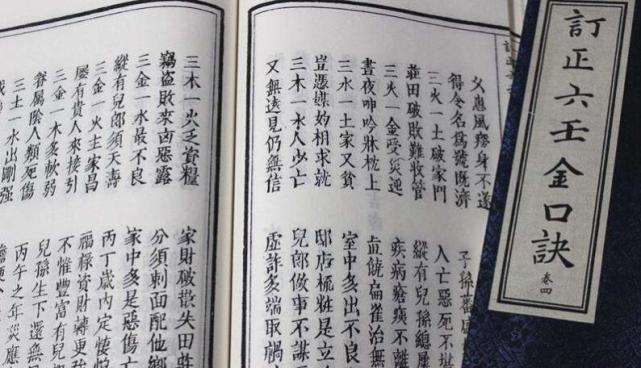 訂正六壬金口訣
卷四
父患風癆身不遂
得令名爲號既濟
三火一土破家門
人亡惡死不堪
莊田破敗難收管
縱有兒孫總屬
三火一金受災迍
疾病瘡痍不離
晝夜呻吟牀枕上
直饒扁雀治無
三水一土家又貧
室中多出不良
豈憑媒妁相求就
邸店梳粧是立
三木一水人少亡
兒郎做事不謀
又無遠見仍無信
虛詐多端取禍
三木一火乏資糧
家財破散失田莊
竊盜敗來凶惡露
分須刺面配他鄉
三金一水最不良
家中多是惡傷亡
縱有兒郎須夭壽
丙丁歲內定悽惶
三金一火主家昌
福祿資財轉更
屢有貴人來接引
不惟豐富有兒
三金一木多軟弱
兒孫生下還無
眷屬陰人類死傷
丙午之年災應
三土一水出剛强